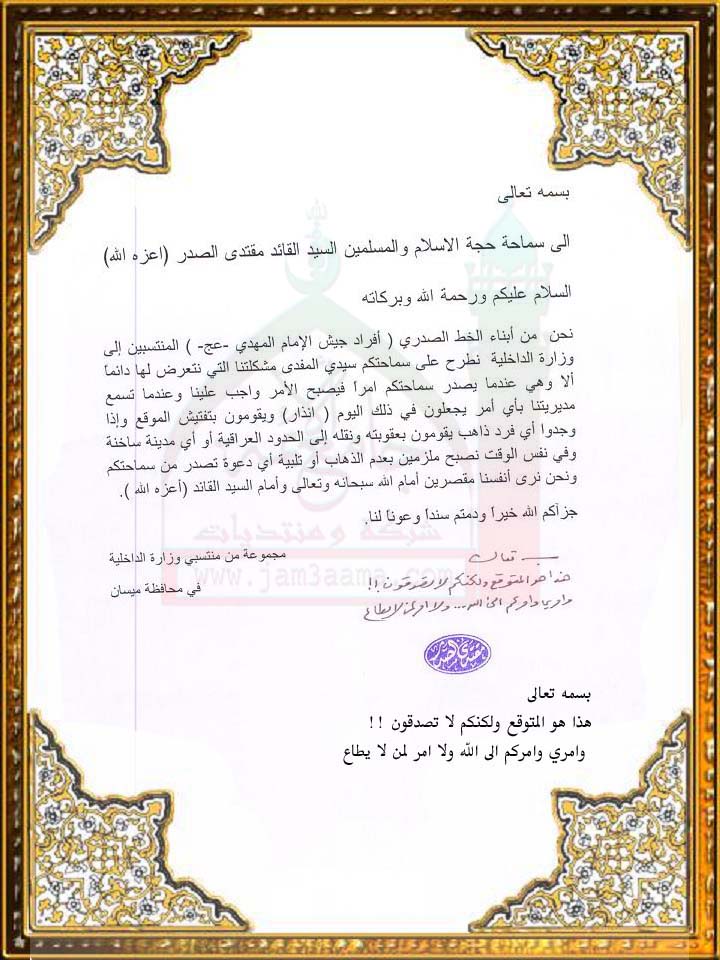 بسمه تعالى
الى سماحة حجة الاسلام والمسلمين السيد القائد مقتدى الصدر (اعزه الله)
السلام عليكم ورحمة الله وبركاته
نحن من أبناء الخط الصدري ( أفراد جيش الإمام المهدي -عج- ) المنتسبين إلى
وزارة الداخلية نطرح على سماحتكم سيدي المفدى مشكلتنا التي نتعرض لها دائماً
ألا وهي عندما يصدر سماحتكم امراً فيصبح الأمر واجب علينا وعندما تسمع
مديريتنا بأي أمر يجعلون في ذلك اليوم ( انذار) ويقومون بتفتيش الموقع وإذا
وجدوا أي فرد ذاهب يقومون بعقوبته ونقله إلى الحدود العراقية أو أي مدينة ساخنة
وفي نفس الوقت نصبح ملزمين بعدم الذهاب أو تلبية أي دعوة تصدر من سماحتكم
ونحن نرى أنفسنا مقصرين أمام الله سبحانه وتعالى وأمام السيد القائد (أعزه الله ).
جزآكم الله خيراً ودمتم سنداً وعوناً لنا.
شركة ومنتديات
www.jam3aama.com
مجموعة من منتسبي وزارة الداخلية
في محافظة ميسان
بسمه تعالى
هذا هو المتوقع ولكنكم لا تصدقون !!
وامري وامركم الى الله ... ولا امر لمن لا يطاع
مقتدى الصدر
بسمه تعالى
هذا هو المتوقع ولكنكم لا تصدقون !!
وامري وامركم الى الله ولا امر لمن لا يطاع